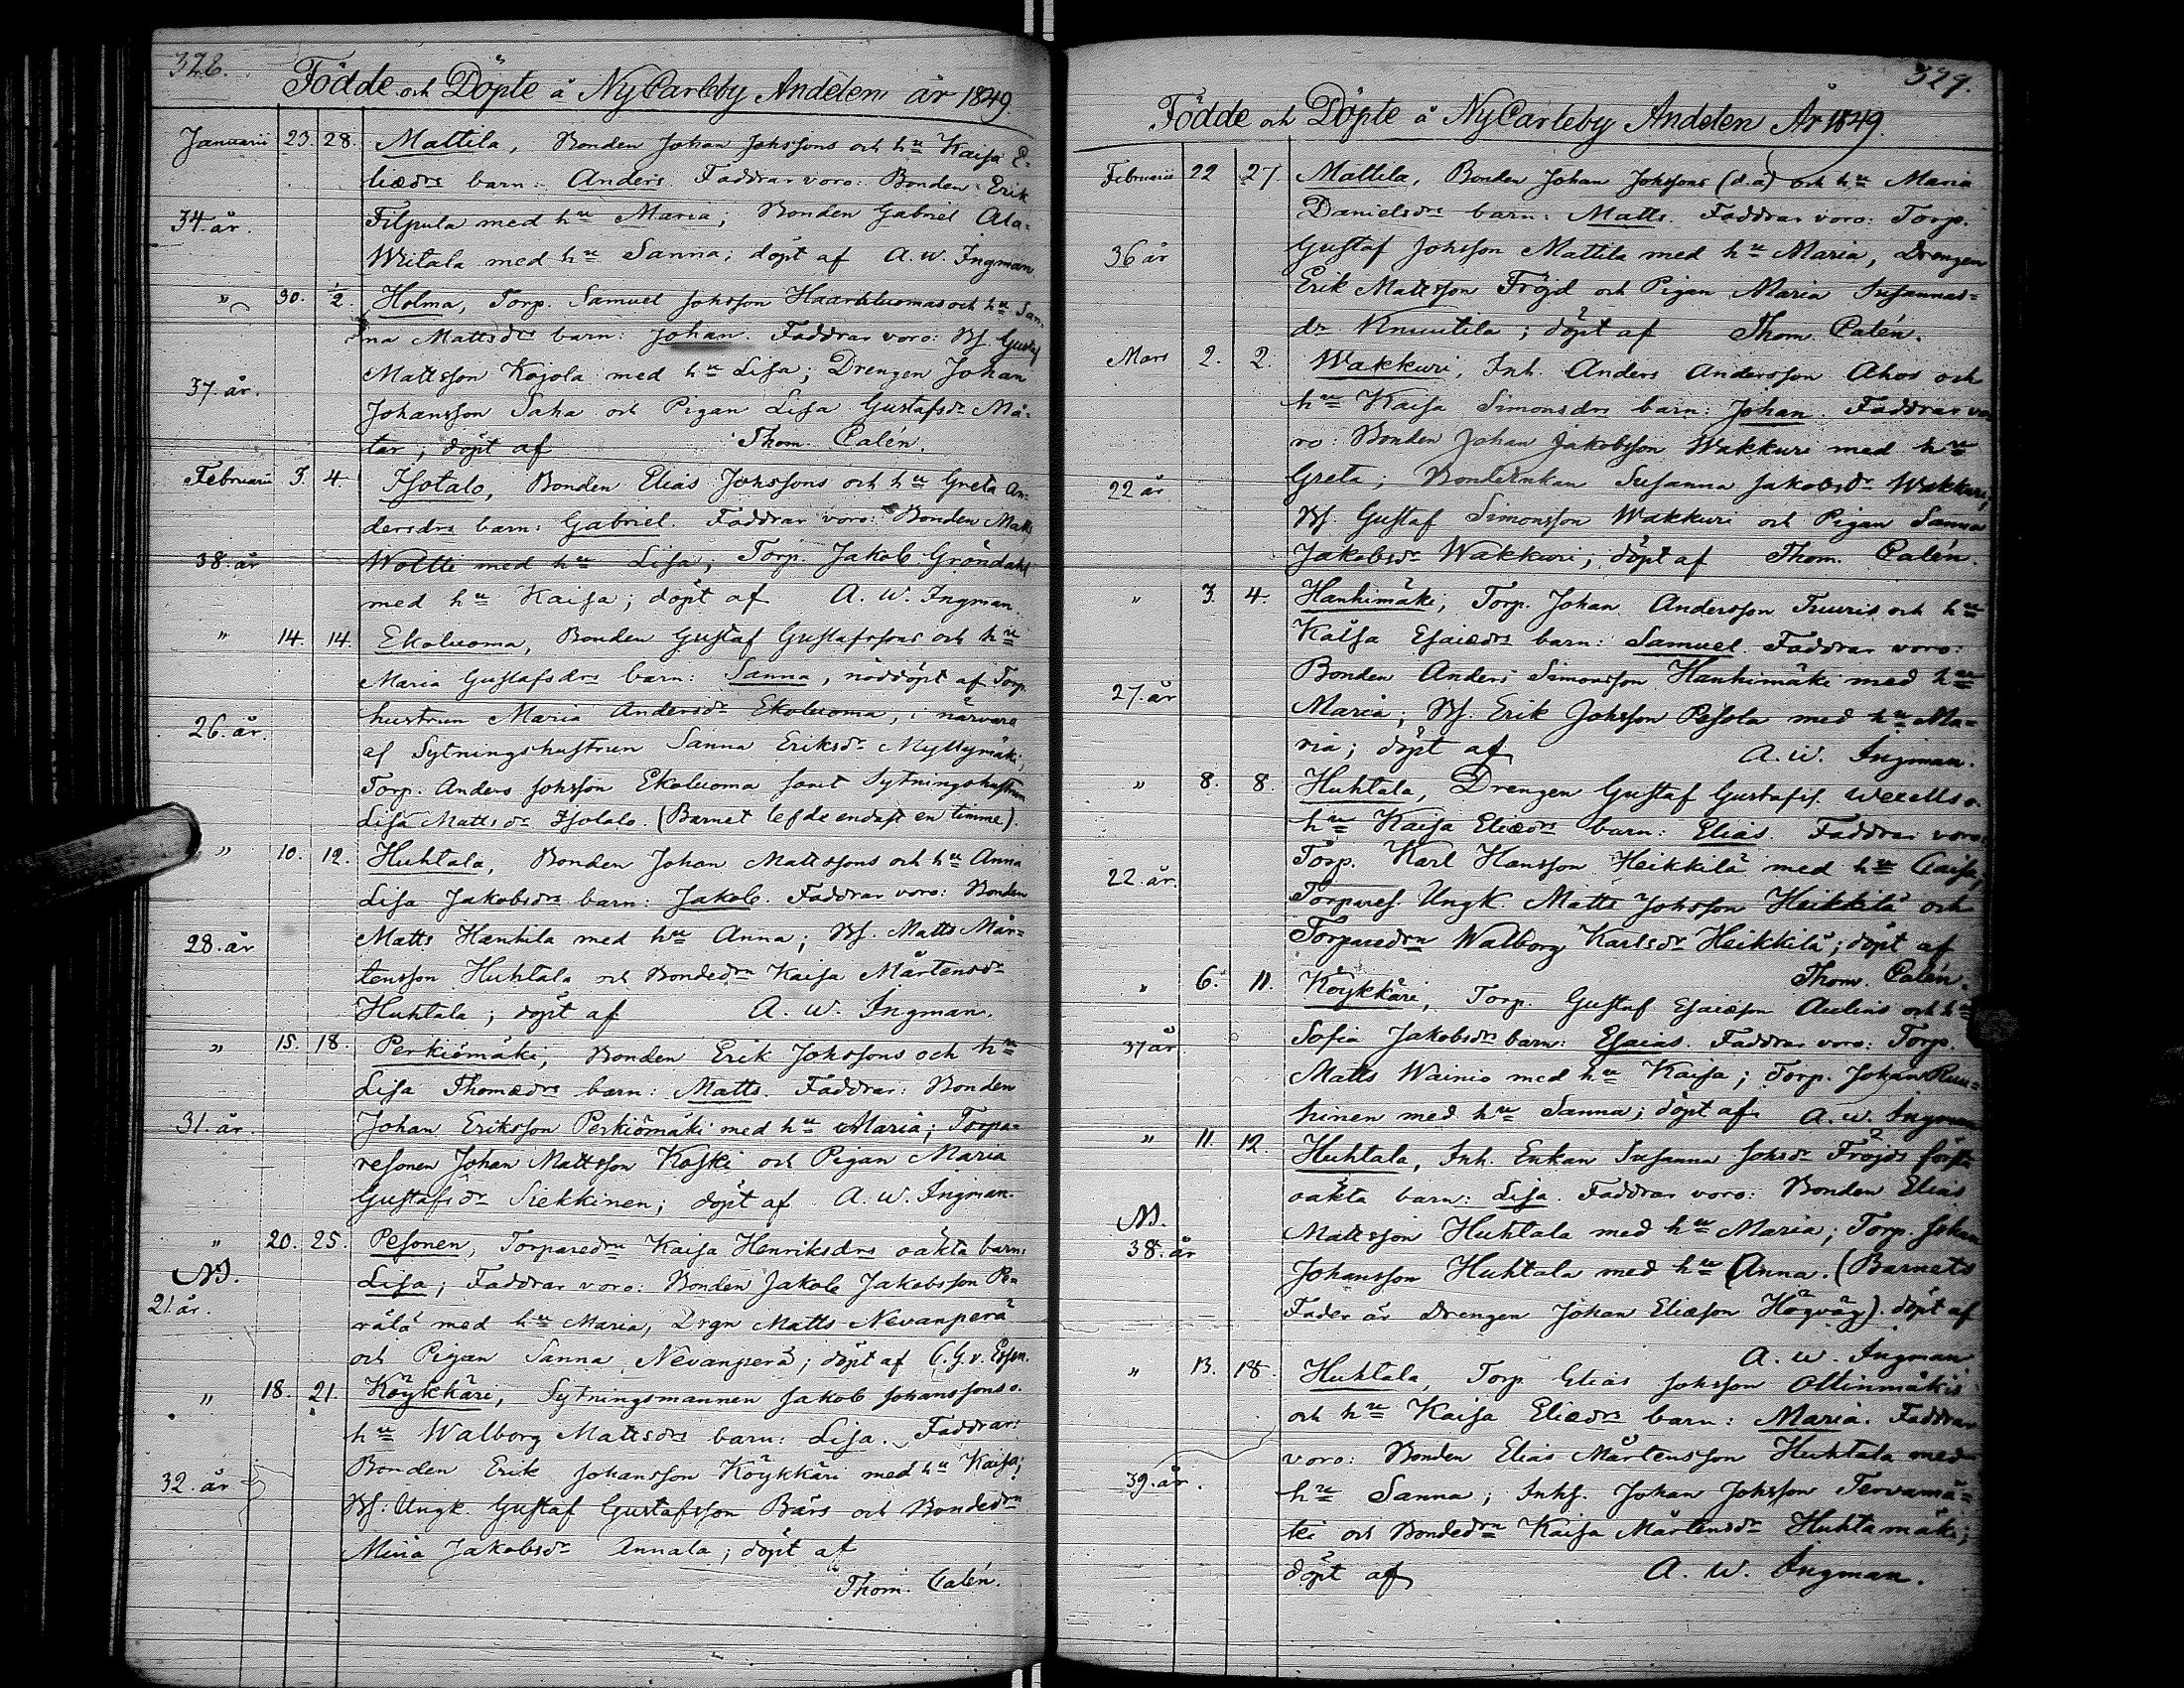 328.
Födde och Döpte å NyCarleby Andelen år 1849.
Januarii 23. 28. Mattila, Bonden Johan Johssons och hu Kaisa E-
liædrs barn: Anders. Faddrar voro: Bonden Erik
34. år. Filpula med hu Maria; Bonden Gabriel Ala-
Writala med hu Sanna; döpt af A. W. Ingman.
" 30. 1/2. Holma, Torp. Samuel Johsson Haarkluomas och hu San-
na Mattsdrs barn: Johan. Faddrar voro: Bs. Gustaf
37. år. Mattsson Kojola med hu Lisa; Drengen Johan
Johansson Saha och Pigan Lisa Gustafsdr Må-
tar; döpt af Thom. Calén.
Februarii 3. 4. Isotalo, Bonden Elias Johssons och hu Greta An-
dersdrs barn: Gabriel. Faddrar voro: Bonden Matts
38. år Woltti med hu Lisa; Torp. Jakob Gröndahl
med hu Kaisa; döpt af A. W. Ingman.
" 14. 14. Ekoluoma, Bonden Gustaf Gustafssons och hu
Maria Gustafsdrs barn: Sanna, nöddöpt af Torp.
26. år. hustrun Maria Andersdr Ekoluoma, i närvaro
af Sytningshustrun Sanna Eriksdr Myllymäki,
Torp. Anders Johsson Ekoluoma samt Sytningshustrun
Lisa Mattsdr Isotalo. (Barnet lefde endast en timme).
" 10. 12. Huhtala, Bonden Johan Mattssons och hu Anna
Lisa Jakobsdrs barn: Jakob. Faddrar voro: Bonden
28. år Matts Hantula med hu Anna; Bs. Matts Mår-
tensson Huhtala och Bondedrn Kaisa Mårtensdr
Huhtala; döpt af A. W. Ingman.
" 15. 18. Perkiömäki, Bonden Erik Johssons och hu
Lisa Thomædrs barn: Matts. Faddrar: Bonden
31. år. Johan Eriksson Perkiömäki med hu Maria; Torpa-
resonen Johan Mattsson Koski och Pigan Maria
Gustafsdr Siekkinen; döpt af A. W. Ingman.
" 20. 25. Pesonen, Torparedrn Kaisa Henriksdrs oäkta barn:
Lisa; Faddrar voro: Bonden Jakob Jakobsson Pe-
21. år. rälä med hu Maria, Drgn Matts Nevanperä
och Pigan Sanna Nevanperä; döpt af C. G. v. Essen.
" 18. 21. Köykkäri, Sytningsmannen Jakob Johanssons o.
hu Walborg Mattsdrs barn: Lisa. Faddrar:
32. år Bonden Erik Johansson Köykkäri med hu Kaisa;
Bs: Ungk. Gustaf Gustafsson Bärs och Bondedrn
Mina Jakobsdr Annala; döpt af
Thom. Calén.
329.
Födde och Döpte å NyCarleby Andelen År 1849.
Februarii 22 27 Mattila, Bonden Johan Johssons (d.ä) och hu Maria
Danielsdrs barn: Matts. Faddrar voro: Torp.
36 år Gustaf Johsson Mattila med hu Maria, Drengen
Erik Mattsson Fröjd och Pigan Maria Susannas-
dr Knuutila; döpt af Thom. Calén.
Mars 2. 2. Wakkuri, Inh. Anders Andersson Ahos och
hu Kaisa Simonsdrs barn: Johan. Faddrar vo-
ro: Bonden Johan Jakobsson Wakkuri med hu
22 år Greta; Bondeenkan Susanna Jakobsdr Wakkuri;
Bs. Gustaf Simonsson Wakkuri och Pigan Sanna
Jakobsdr Wakkuri; döpt af Thom. Calén.
" 3. 4. Hanhimäki; Torp. Johan Andersson Truuris och hu
Kaisa Esaiædrs barn: Samuel. Faddrar voro:
27. år Bonden Anders Simonsson Hanhimäki med hu
Maria; Bs. Erik Johsson Pesola med hu Ma-
ria; döpt af A. W. Ingman.
" 8. 8. Huhtala, Drengen Gustaf Gustafss. Wexells o.
hu Kaisa Eliædrs barn: Elias. Faddrar voro:
22. år. Torp. Karl Hansson Heikkilä med hu Caisa,
Torpares. Ungk Matts Johsson Heikkilä och
Torparedrn Walborg Karlsdr Heikkilä; döpt af
Thom. Calén.
" 6. 11. Köykkäri, Torp. Gustaf Esaiæson Aulins och hu
37 år Sofia Jakobsdrs barn: Esaias. Faddrar voro: Torp.
Matts Wainio med hu Kaisa; Torp. Johan Ruu-
hinen med hu Sanna; döpt af A. W. Ingman
" 11. 12. Huhtala, Inh. Enkan Susanna Johsdr Fröjds första
oäkta barn: Lisa. Faddrar voro: Bonden Elias
38. år Mattsson Huhtala med hu Maria; Torp. Johan
Johansson Huhtala med hu Anna. (Barnets
Fader är Drengen Johan Eliæson Högväg). döpt af
A. W. Ingman
" 13. 18. Huhtala, Torp. Elias Johsson Ollinmäkis
och hu Kaisa Eliædrs barn: Maria. Faddrar
39. år. voro: Bonden Elias Mårtensson Huhtala med
hu Sanna; Inhs. Johan Johsson Tervamä-
ki och Bondedrn Kaisa Mårtensdr Huhtamäki;
döpt af A. W. Ingman.